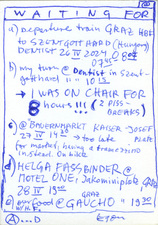 WAITING FOR
a) departure train GRAZ HBF
to SZENTGOTTHARD (Hungary)
DENTIST 26 IV 2024 08 03
b) my turn @ Dentist in Szent-
gotthard
→ I WAS ON CHAIR FOR
8 hours!!! (2 PISS-
BREAKS)
c) @ BAUERNMARKT KAISER-JOSEF
27 IV too late
for market, having a francesino
instead. On bike.
d) HELGA FASSBINDER @
MOTEL ONE, Jakominiplatz GRAZ
28 IV 19
e) my food @ GAUCHO 19 30
A...D